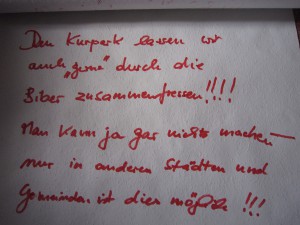 Den Kurpark lassen wir
auch "gerne" durch die
Biber zusammenfressen!!!!
Man kann ja gar nichts machen –
nur in anderen Städten und
Gemeinden ist dies möglich !!!